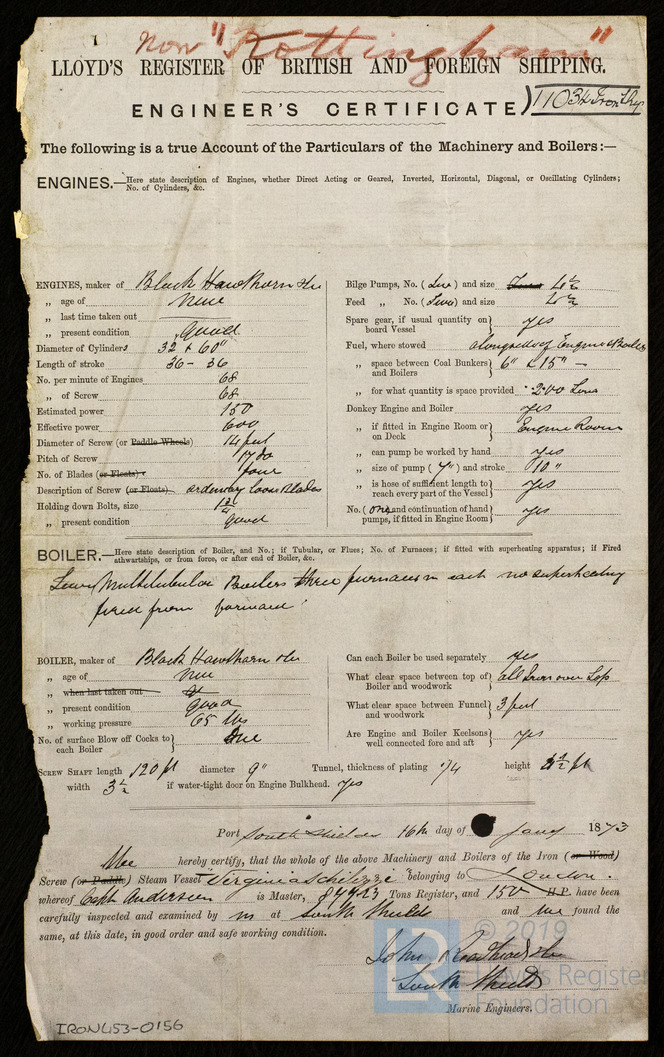 now "Nottingham"
LLOYD'S REGISTER OF BRITISH AND FOREIGN SHIPPING.
ENGINEER'S CERTIFICATE
11034 Iron Ship
The following is a true Account of the Particulars of the Machinery and Boilers:—
ENGINES.—Here state description of Engines, whether Direct Acting or Geared, Inverted, Horizontal, Diagonal, or Oscillating Cylinders;
No. of Cylinders, &c.
ENGINES, maker of Black Hawthorn &Co
„ age of New
„ last time taken out
„ present condition good
Diameter of Cylinders 32 & 60"
Length of stroke 36 - 36
No. per minute of Engines 68
„ of Screw 68
Estimated power 150
Effective power 600
Diameter of Screw (or Paddle Wheels) 14 feet
Pitch of Screw 17 do
No. of Blades (or Floats) four
Description of Screw (or Floats) ordinary loose Blades
Holding down Bolts, size 1 3/4
„ present condition good
Bilge Pumps, No. (two) and size 4½
Feed „ No. (two) and size 4½
Spare gear, if usual quantity on
board Vessel yes
Fuel, where stowed alongside of Engine & Boiler
„ space between Coal Bunkers
and Boilers 6" & 15" —
„ for what quantity is space provided 200 Tons
Donkey Engine and Boiler yes
„ if fitted in Engine Room or
on Deck Engine Room
„ can pump be worked by hand yes
„ size of pump (4") and stroke 10"
„ is hose of sufficient length to
reach every part of the Vessel yes
No. (one) and continuation of hand
pumps, if fitted in Engine Room yes
BOILER.—Here state description of Boiler, and No.; if Tubular, or Flues; No. of Furnaces; if fitted with superheating apparatus; if Fired
athwartships, or from force, or after end of Boiler, &c.
Two Multitubular Boilers three furnaces in each no superheating
fired from forward
BOILER, maker of Black Hawthorn &Co
„ age of New
„ when last taken out
„ present condition good
„ working pressure 65 lbs
No. of surface Blow off Cocks to
each Boiler one
Can each Boiler be used separately yes
What clear space between top of
Boiler and woodwork all Iron over top
What clear space between Funnel
and woodwork 3 feet
Are Engine and Boiler Keelsons
well connected fore and aft yes
SCREW SHAFT length 120 ft diameter 9" Tunnel, thickness of plating 1/4 height ft
width 3½ if water-tight door on Engine Bulkhead. yes
Port South Shields 16th day of Jany 1873
We hereby certify, that the whole of the above Machinery and Boilers of the Iron (or Wood)
Screw (or Paddle) Steam Vessel "Virginia Schilizzi" belonging to London.
whereof Capt Andersen is Master, Tons Register, and 150 H.P. have been
carefully inspected and examined by us at South Shields and we found the
same, at this date, in good order and safe working condition.
John Readhead &Co
South Shields
Marine Engineers.
© 2019
LR Lloyd's Register
Foundation
IRON453-0156